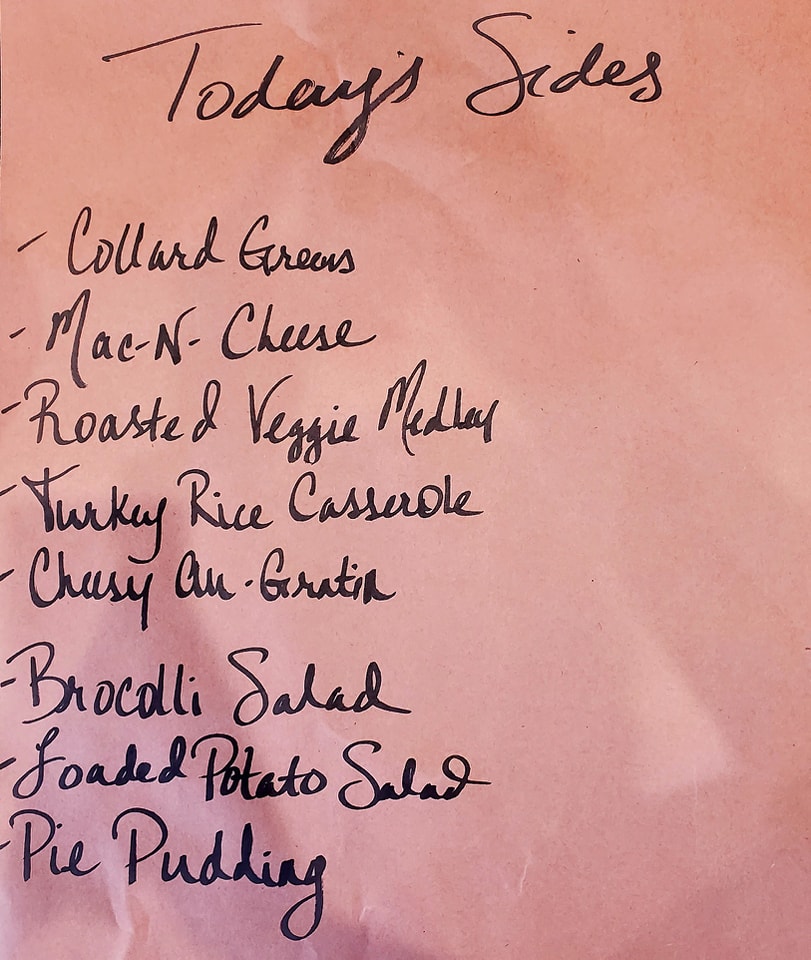 Today's Sides
- Collard Greens
- Mac-N-Cheese
- Roasted Veggie Medley
- Turkey Rice Casserole
- Cheesy Au-Gratin
- Brocolli Salad
- Loaded Potato Salad
- Pie Pudding